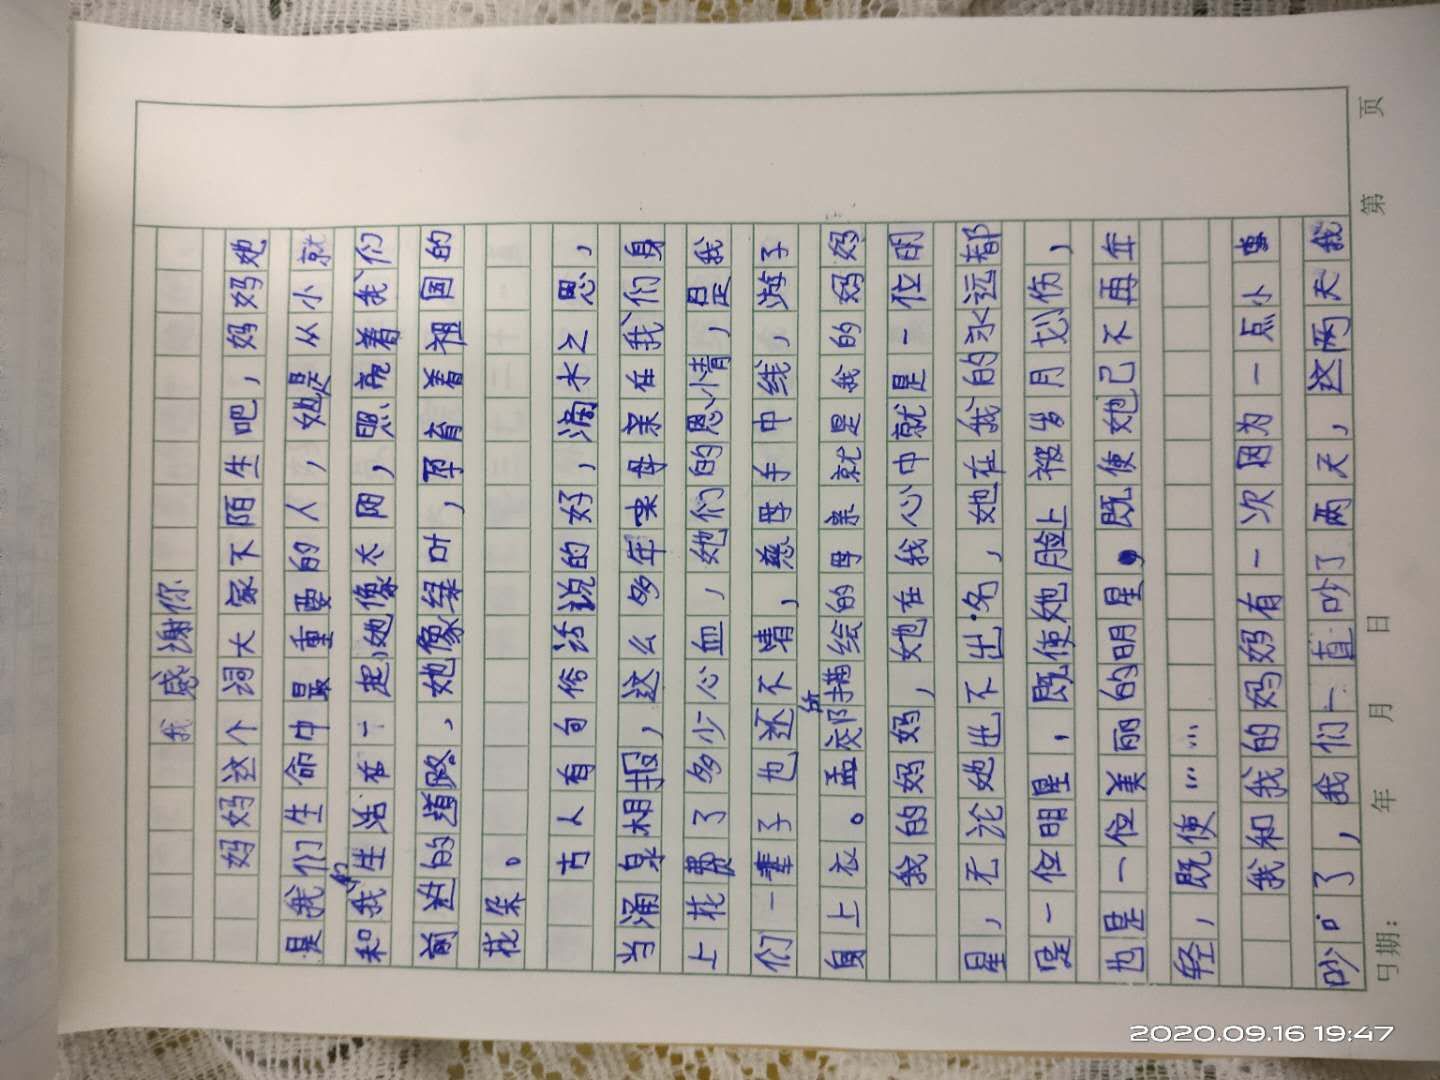 我感谢你
妈妈这个词大家不陌生吧，妈妈她
是我们生命中最重要的人，她是从小就
和我们生活在一起，她像太阳，照亮着我们
前进的道路、她像绿叶，孕育着祖国的
花朵。
古人有句俗话说的好，滴水之恩，
当涌泉相报，这么多年来母亲在我们身
上花费了多少心血，她们的恩情，是我
们一辈子也还不清，慈母手中线，游子
身上衣。孟郊所描绘的母亲就是我的妈妈
我的妈妈，她在我心中就是一位明
星，无论她出不出名，她在我的永远都
是一位明星，既使她脸上被岁月划伤，
也是一位美丽的明星。既使她已不再年
轻，既使……
我和我的妈妈有一次因为一点小事
吵了，我们一直吵了两天，这两天我
日期： 年 月 日 第 页
2020.09.16 19:47